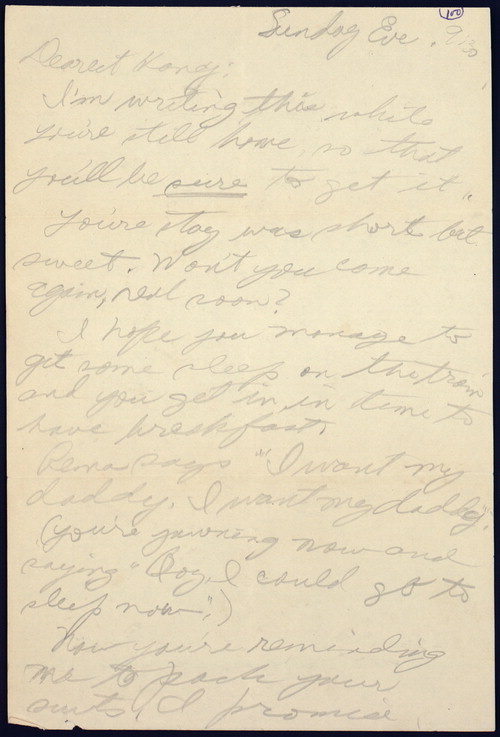 100
Sunday Eve. 9:30
Dearest Kandy:
I'm writing this while
you're still home, so that
you'll be sure to get it.
You're stay was short but
sweet. Won't you come
again, real soon?
I hope you manage to
get some sleep on the train
and you get in in time to
have breakfast.
says "I want my
daddy, I want my daddy".
(You're yawning now and
saying "Boy, I could go to
sleep now".)
Now you're reminding
me to pack your
suits. I promise